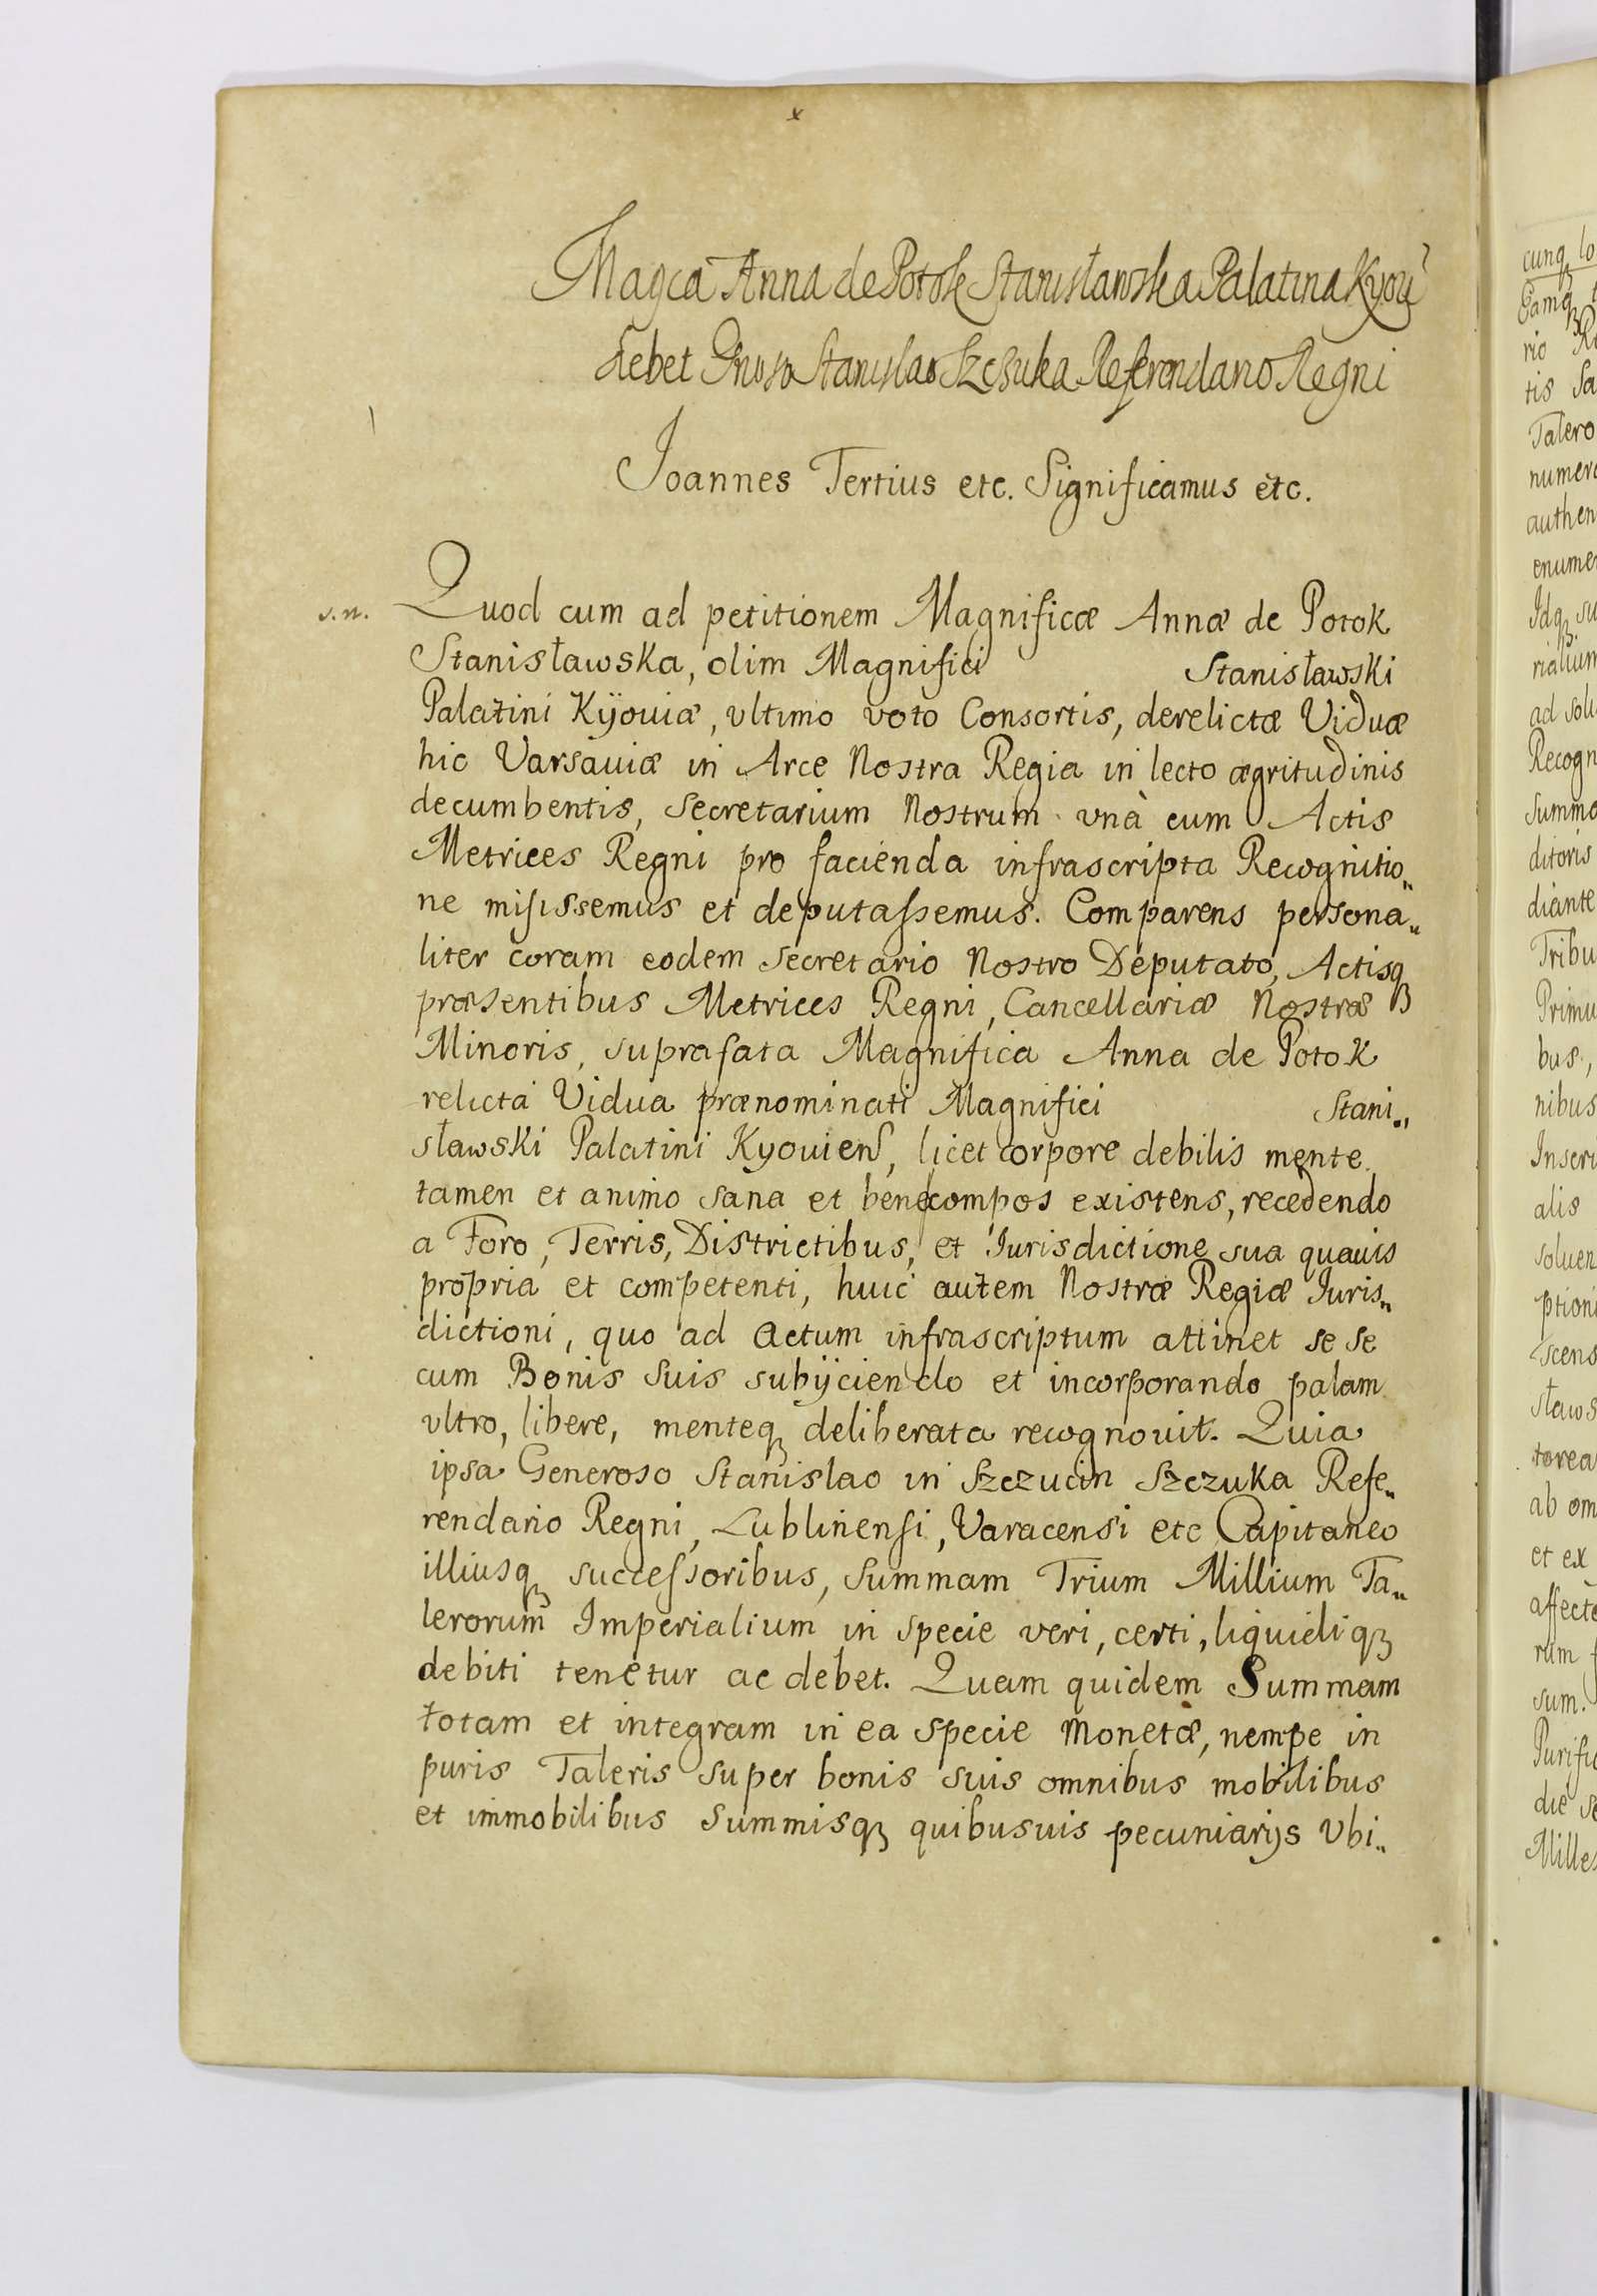 Magca Anna de Potok Stanisławska Palatina Kyoui
debet Gnoso Stanislao Szczuka Referendario Regni
Joannes Tertius etc. Significamus etc.
s.n.
Quod cum ad petitionem Magnificæ Annæ de Potok
Stanisławska, olim Magnifici Stanisławski
Palatini Kÿouiæ, vltimo voto Consortis, derelictæ Viduæ
hic Varsauiæ in Arce Nostra Regia in lecto ægritudinis
decumbentis, Secretarium Nostrum vnà cum Actis
Metrices Regni pro facienda infrascripta Recognitio„
ne misissemus et deputassemus. Comparens persona„
liter coram eodem Secretario Nostro Deputato, Actisqꝫ
præsentibus Metrices Regni, Cancellariæ Nostræ
Minoris, suprafata Magnifica Anna de Potok
relicta Vidua prænominati Magnifici Stani„
sławski Palatini Kyouiens, licet corpore debilis mente
tamen et animo sana et bene compos existens, recedendo
a Foro, Terris, Districtibus, et Iurisdictione sua quauis
propria et competenti, huic autem Nostræ Regiæ Iuris„
dictioni, quo ad actum infrascriptum attinet se se
cum Bonis suis subijciendo et incorporando palam
vltro, libere, menteqꝫ deliberata recognouit. Quia
ipsa Generoso Stanislao in Szczucin Szczuka Refe„
rendario Regni, Lublinensi, Varacensi etc Capitaneo
illiusqꝫ successoribus, Summam Trium Millium Ta„
lerorum Imperialium in specie veri, certi, liquidiqꝫ
debiti tenetur ac debet. Quam quidem Summam
totam et integram in ea specie Monetæ, nempe in
puris Taleris super bonis suis omnibus mobilibus
et immobilibus Summisqꝫ quibusuis pecuniarijs Vbi„
cunqꝫ lo
Eamqꝫ
rio
tis Sa
Talero
numer
authen
enume
Idqꝫ su
rialium
ad solu
Recogn
Summa
ditoris
diante
Tribu
Primu
bus,
nibus
Inscri
alis
soluen
ption
scens
sławs
torea
ab om
et ex
affect
rum
sum.
Purifi
die se
Milles